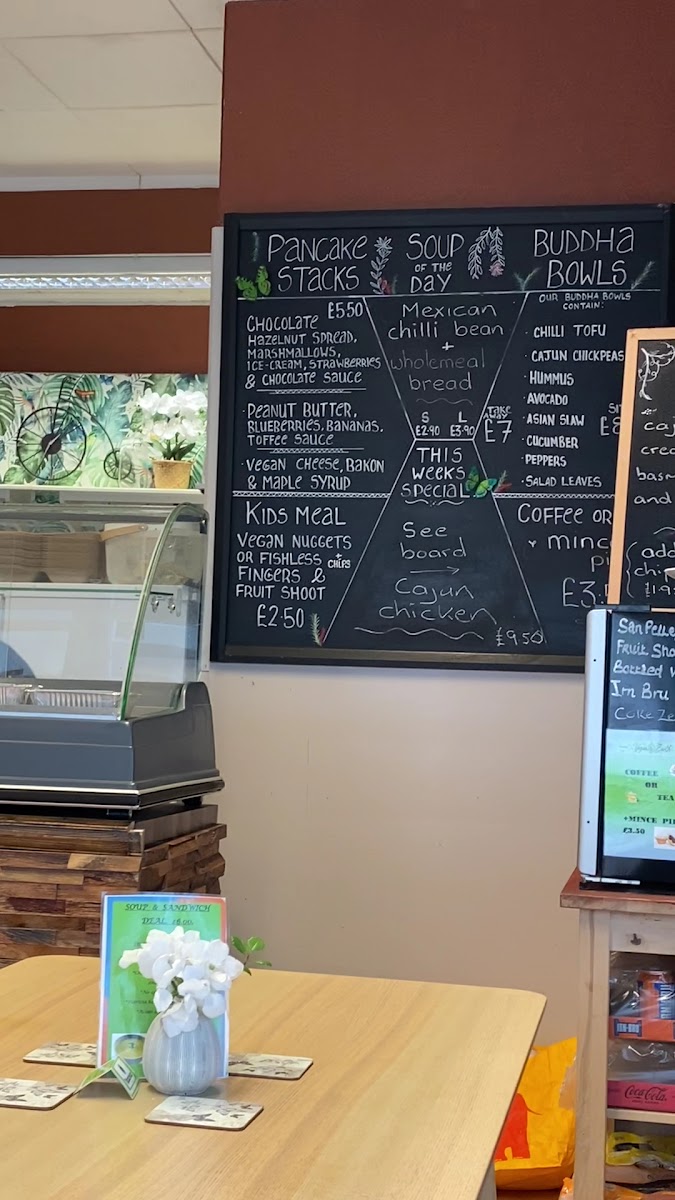 PANCAKE
STACKS
£5.50
CHOCOLATE
HAZELNUT SPREAD,
MARSHMALLOWS,
ICE-CREAM, STRAWBERRIES
& CHOCOLATE SAUCE
PEANUT BUTTER,
BLUEBERRIES, BANANAS,
TOFFEE SAUCE
VEGAN CHEESE, BAKON
& MAPLE SYRUP
KIDS MEAL
VEGAN NUGGETS
OR FISHLESS + CHIPS
FINGERS &
FRUIT SHOOT
£2.50
SOUP
OF THE
DAY
Mexican
chilli bean
+
wholemeal
bread
S L
£2.90 £3.90
THIS
WEEKS
SPECIAL
See
board
Cajun
chicken
£9.50
BUDDHA
BOWLS
OUR BUDDHA BOWLS
CONTAIN:
· CHILLI TOFU
· CAJUN CHICKPEAS
· HUMMUS
· AVOCADO
· ASIAN SLAW
· CUCUMBER
· PEPPERS
· SALAD LEAVES
£7
COFFEE OR
+ minc
£3.
caj
crea
basm
and
(add
chi
£1.9
San Pelle
Fruit Sho
Bottled W
Irn Bru
Coke Ze
COFFEE
OR
TEA
+MINCE PIE
£3.50
SOUP & SANDWICH
DEAL £6.00
IRN-BRU
Coca-Cola